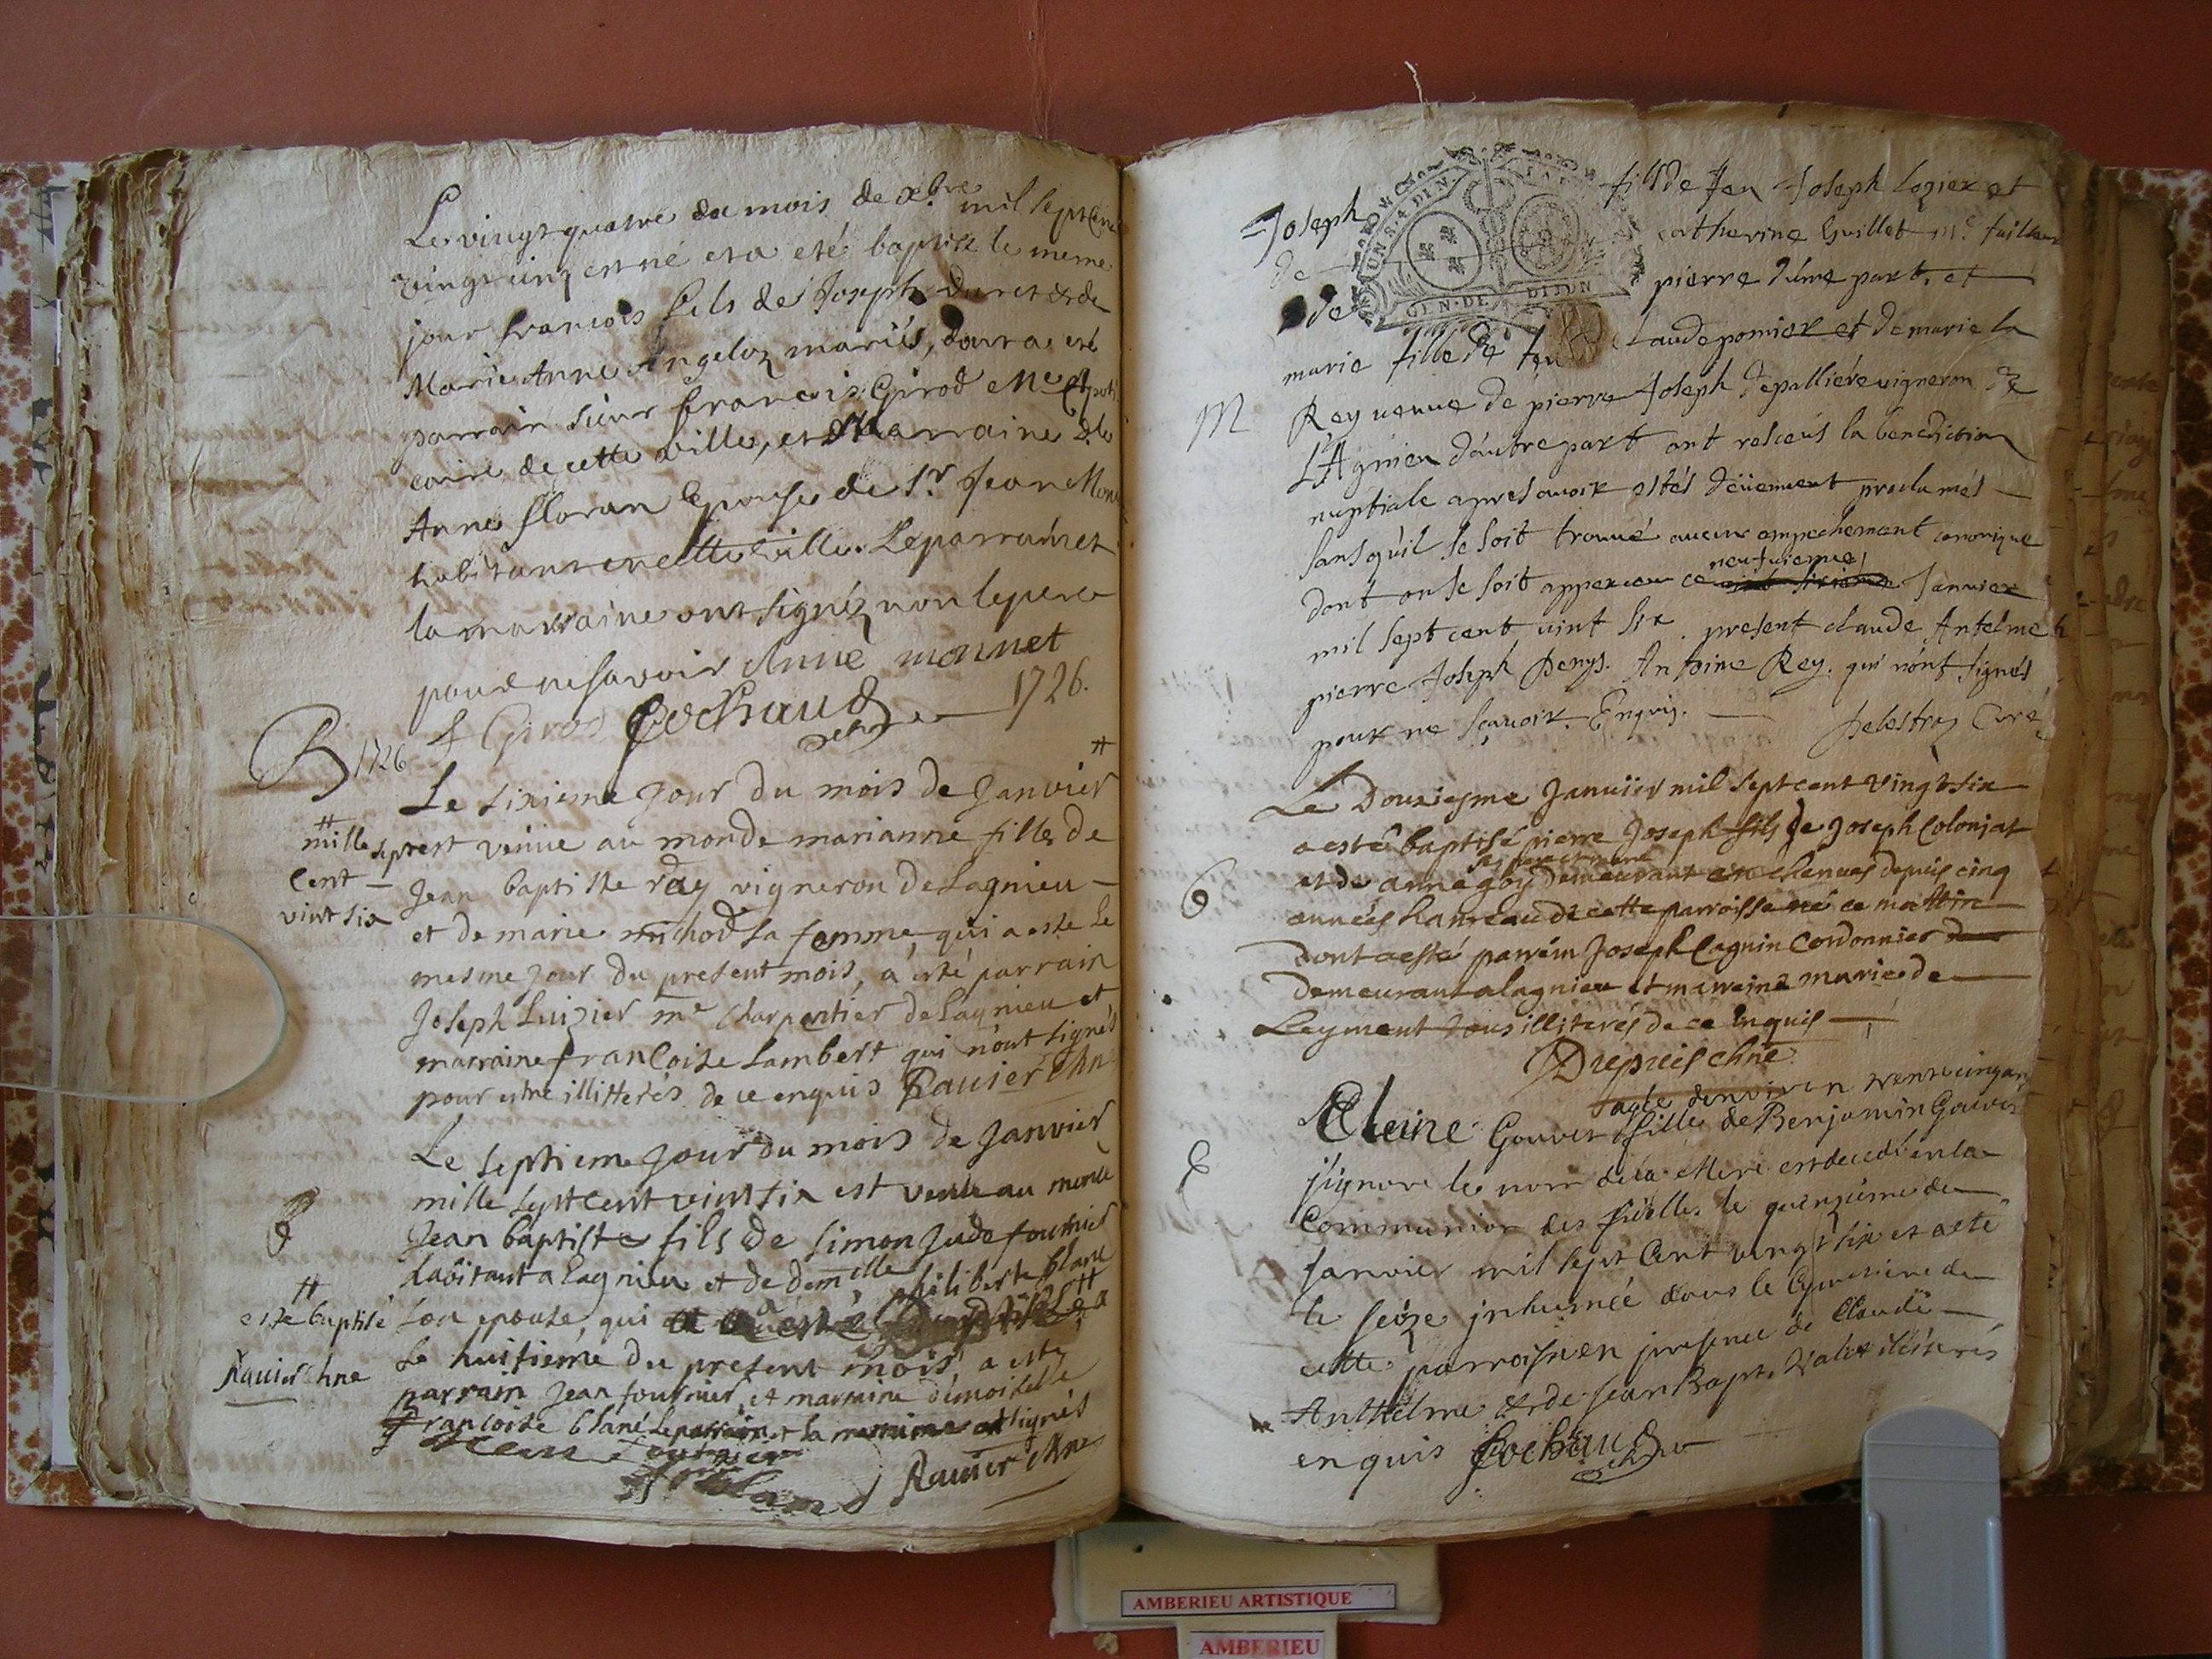 Le vingt quatre du mois de xbre mil sept cent
vingt cinq est né et a eté baptisé le meme
jour francois fils de Joseph Duret et de
Marie Anne Angeloz mariés, dont a eté
parrain sieur francois Girod Me Apoti
caire de cette ville, et Marraine dlle
Anne floran Epouse de Sr Jean Mon
habitant en cette ville. Le parrain et
la marraine ont signéz non le pere
pour ne savoir Anne monnet
f Girod Cochaud 1726.
B 1726
Le sixieme jour du mois de Janvier #
# mille sept
cent
vint six
est venüe au monde marianne fille de
Jean baptiste ray vigneron de Lagnieu
et de marie michod sa femme, qui a esté le
mesme jour du present mois, a esté parrain
Joseph Luizier me charpentier de Lagnieu et
marraine francoise Lambert qui n'ont signés
pour estre illitterés de ce enquis Ravier chne
Le septieme jour du mois de Janvier
mille sept cent vint six est venu au monde
B
Jean baptiste fils de simon Jude fournier
habitant a Lagnieu et de demlle philiberte blanc
son epouse, qui a
# esté baptisé
Ravier chne
le huitieme du present mois a esté
parrain Jean fournier, et marraine demoiselle
francoise blanc Le parrain et la marraine ont signés
Jean fournier
Ravier chne
Joseph fils de feu Joseph Logier et
de catherine Guillet me tailleur
de pierre d'une part, et
marie fille de feu Claude pomier et de marie la
M
Rey veuve de pierre Joseph Depallière vigneron de
L'Agnieu d'autre part ont resceus la benediction
nuptiale apres avoir estés deüement proclamés
sans qu'il se soit trouvé aucun empechement canonique
dont on se soit apperceu ce neufvieme Janvier
mil sept cent vint six. present claude Antelme
pierre Joseph Denys. Antoine Rey. qui n'ont signés
pour ne sçavoir. Enquis. Delestraz Curé
Le Douziesme Janvier mil sept cent vingt six
a esté baptisé pierre Joseph fils de Joseph Colonjat
et de anne goy demeurant en chenues depuis cinq
B
années hameau de cette parroisse né ce mattin
dont a esté parrain Joseph Cagnin Cordonnier
demeurant a lagnieu et marreine marie de
Leyment tous illiterés de ce Enquis
Dupuis chne
agée d'environ trente cinq ans
Cleine Gouvet fille de Benjamin Gouvet
j'ignore le nom de la Mere est decedé en la
Communion des fidelles le quinziéme de
Janvier mil sept cent vingt six et a eté
le seize inhumée dans le Cymetiere de
cette parroisse en presence de Claude
Anthelme et de Jean Bapt. Valet illiterés
enquis Cochaud
GEN. DE DIJON
AMBERIEU ARTISTIQUE
AMBERIEU